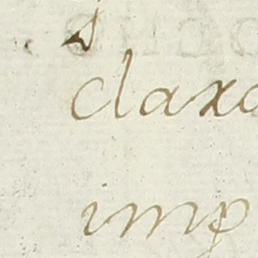 claxa
imp